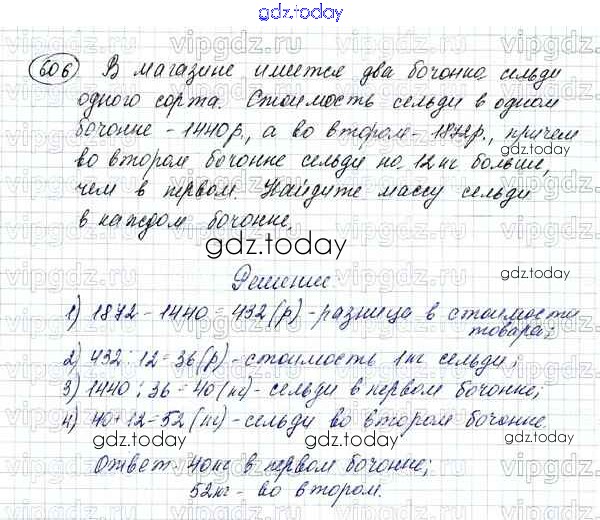 gdz.today
606 В магазине имеется два бочонка сельди
одного сорта. Стоимость сельди в одном
бочонке - 1440р., а во втором - 1872р., причем
во втором бочонке сельди на 12кг больше,
чем в первом. Найдите массу сельди
в каждом бочонке.
gdz.today
Решение
1) 1872 - 1440 = 432 (р) - разница в стоимости
товара;
2) 432 : 12 = 36 (р) - стоимость 1кг сельди;
3) 1440 : 36 = 40 (кг) - сельди в первом бочонке;
4) 40 + 12 = 52 (кг) - сельди во втором бочонке.
gdz.today
Ответ: 40кг в первом бочонке;
52кг - во втором.
gdz.today